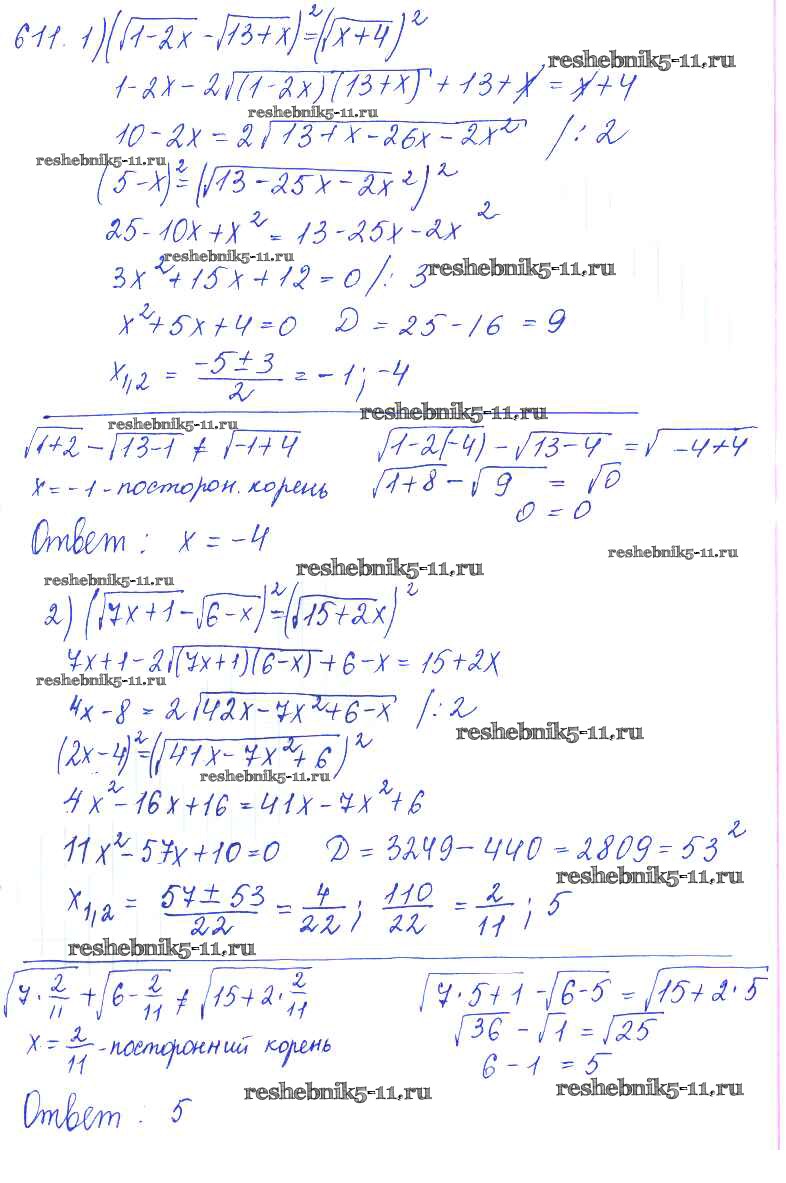 611. 1) (√(1-2x) - √(13+x))² = (√(x+4))²
reshebnik5-11.ru
1-2x-2√((1-2x)(13+x)) + 13+x = x+4
reshebnik5-11.ru
10-2x = 2√(13+x-26x-2x²) /:2
reshebnik5-11.ru
(5-x)² = (√(13-25x-2x²))²
25-10x+x² = 13-25x-2x²
reshebnik5-11.ru
3x²+15x+12=0 /:3
reshebnik5-11.ru
x²+5x+4=0 D = 25-16 = 9
x₁,₂ = (-5±3)/2 = -1; -4
reshebnik5-11.ru
reshebnik5-11.ru
√(1+2) - √(13-1) ≠ √(-1+4) √(1-2(-4)) - √(13-4) = √(-4+4)
x=-1-посторон. корень √(1+8) - √9 = √0
0 = 0
Ответ: x = -4
reshebnik5-11.ru
reshebnik5-11.ru
reshebnik5-11.ru
2) (√(7x+1) - √(6-x))² = (√(15+2x))²
7x+1-2√((7x+1)(6-x)) + 6-x = 15+2x
reshebnik5-11.ru
4x-8 = 2√(42x-7x²+6-x) /:2
reshebnik5-11.ru
(2x-4)² = (√(41x-7x²+6))²
reshebnik5-11.ru
4x²-16x+16 = 41x-7x²+6
11x²-57x+10=0 D = 3249-440 = 2809 = 53²
reshebnik5-11.ru
x₁,₂ = (57±53)/22 = 4/22; 110/22 = 2/11; 5
reshebnik5-11.ru
√(7·2/11) + √(6-2/11) ≠ √(15+2·2/11) √(7·5+1) - √(6-5) = √(15+2·5)
√36 - √1 = √25
x = 2/11 -посторонний корень
6-1 = 5
reshebnik5-11.ru
reshebnik5-11.ru
Ответ: 5